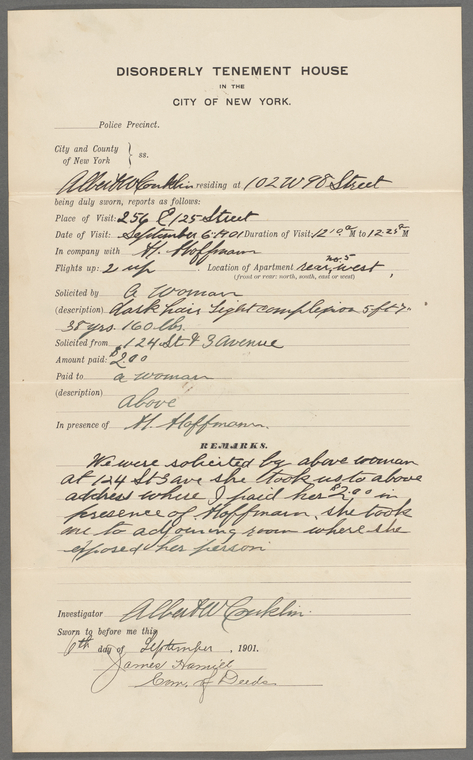 DISORDERLY TENEMENT HOUSE
IN THE
CITY OF NEW YORK.
Police Precinct.
City and County
of New York } ss.
Albert W Conklin residing at 102 W 98 Street
being duly sworn, reports as follows:
Place of Visit: 256 E 125 Street
Date of Visit: September 6-1901 Duration of Visit, 12 10 a M to 12.25 a M
In company with H. Hoffmann
Flights up: 2 up Location of Apartment rear, west, no. 5
(front or rear: north, south, east or west)
Solicited by a woman
(description) dark hair light complexion 5 ft 7"
38 yrs. 160 lbs.
Solicited from 124 St & 3 avenue
Amount paid: $2.00
Paid to a woman
(description)
above
In presence of H. Hoffmann.
REMARKS.
We were solicited by above woman
at 124 St 3 ave she took us to above
address where I paid her $2.00 in
presence of Hoffmann, she took
me to adjoining room where she
exposed her person
Investigator Albert W Conklin.
Sworn to before me this
6th day of September, 1901.
James Hamill
Com. of Deeds